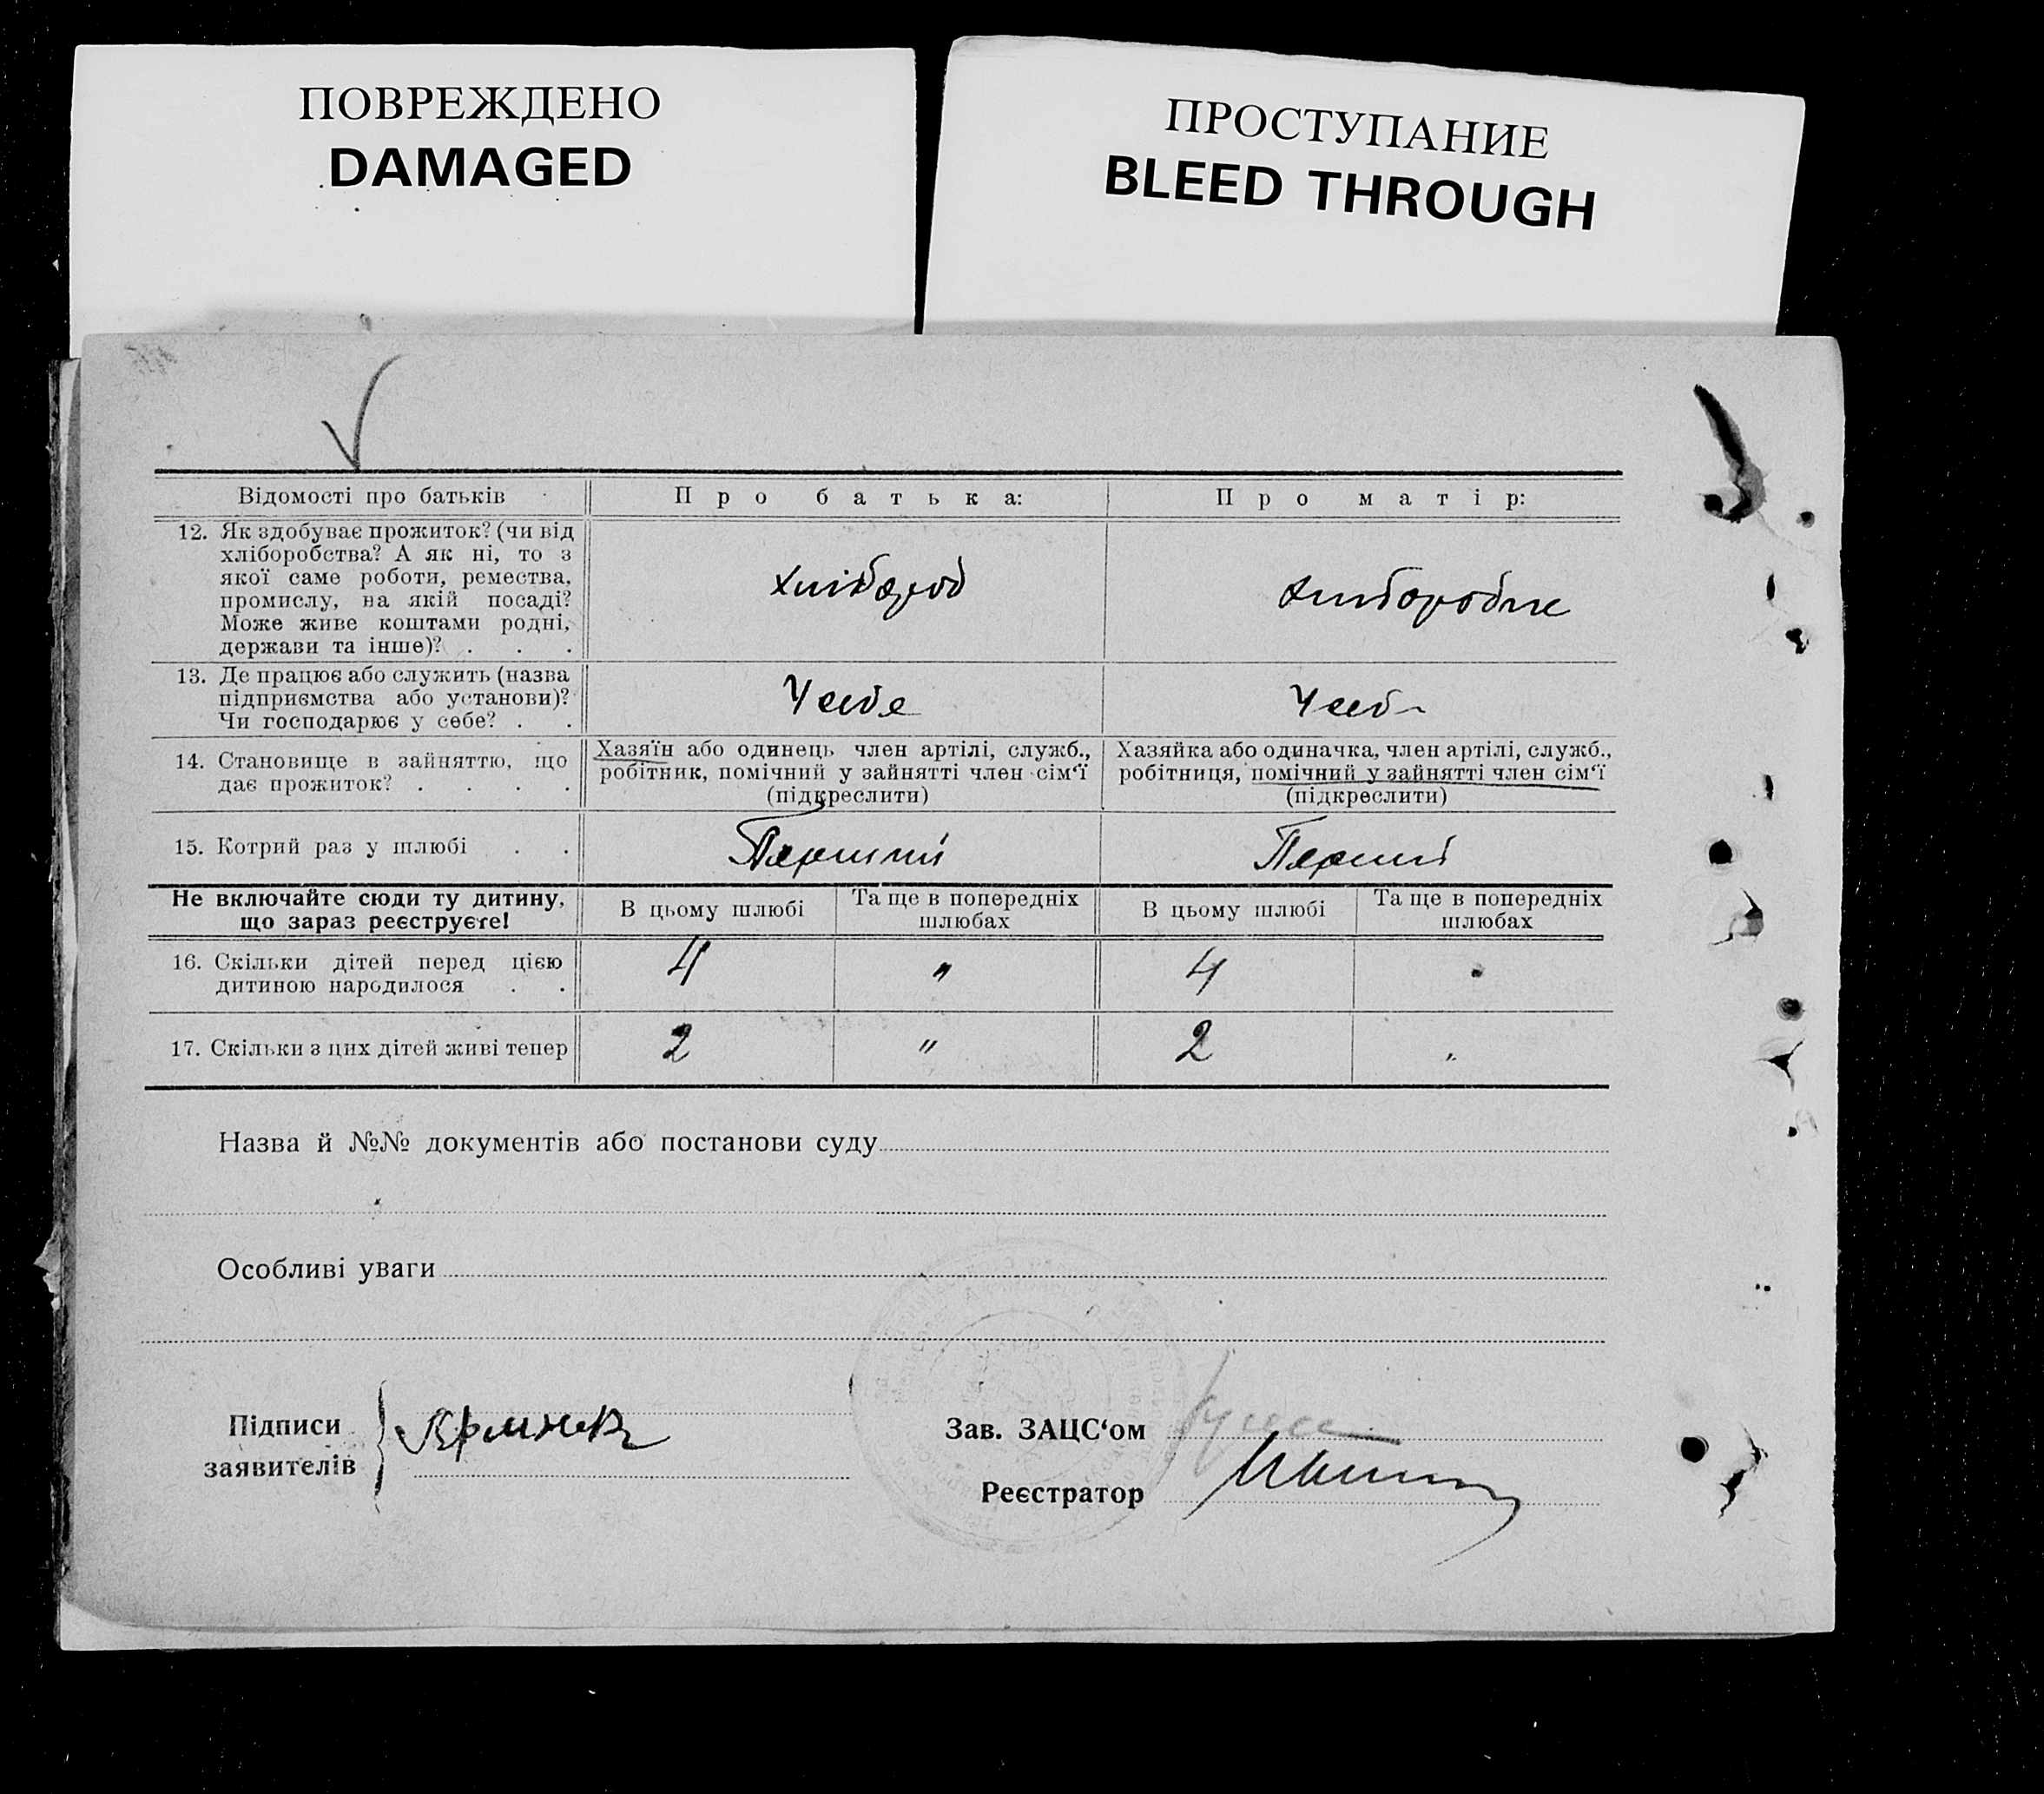 ПОВРЕЖДЕНО
DAMAGED
ПРОСТУПАНИЕ
BLEED THROUGH
Відомості про батьків
Про батька:
Про матір:
12. Як здобуває прожиток? (чи від
хліборобства? А як ні, то з
якої саме роботи, ремества,
промислу, на якій посаді?
Може живе коштами родні,
держави та інше)? . . .
хлібороб
13. Де працює або служить (назва
підприємства або установи)?
Чи господарює у себе? . .
У себе
У себе
14. Становище в зайняттю, що
дає прожиток? . . . .
Хазяїн або одинець член артілі, служб.,
робітник, помічний у зайнятті член сім‘ї
(підкреслити)
Хазяйка або одиначка, член артілі, служб.,
робітниця, помічний у зайнятті член сім‘ї
(підкреслити)
15. Котрий раз у шлюбі . .
Перший
Перший
Не включайте сюди ту дитину,
що зараз реєструєте!
В цьому шлюбі
Та ще в попередніх
шлюбах
В цьому шлюбі
Та ще в попередніх
шлюбах
16. Скільки дітей перед цією
дитиною народилося . .
4
"
4
17. Скільки з цих дітей живі тепер
2
"
2
Назва й №№ документів або постанови суду
Особливі уваги
Підписи
заявителів
Зав. ЗАЦС‘ом
Реєстратор